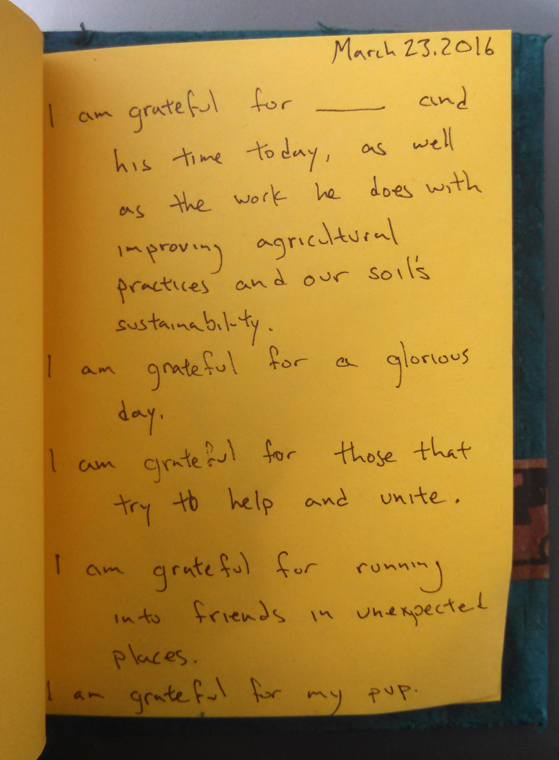 March 23.2016
I am grateful for _____ and
his time today, as well
as the work he does with
improving agricultural
practices and our soil's
sustainability.
I am grateful for a glorious
day.
I am grateful for those that
try to help and unite.
I am grateful for running
into friends in unexpected
places.
I am grateful for my pup.